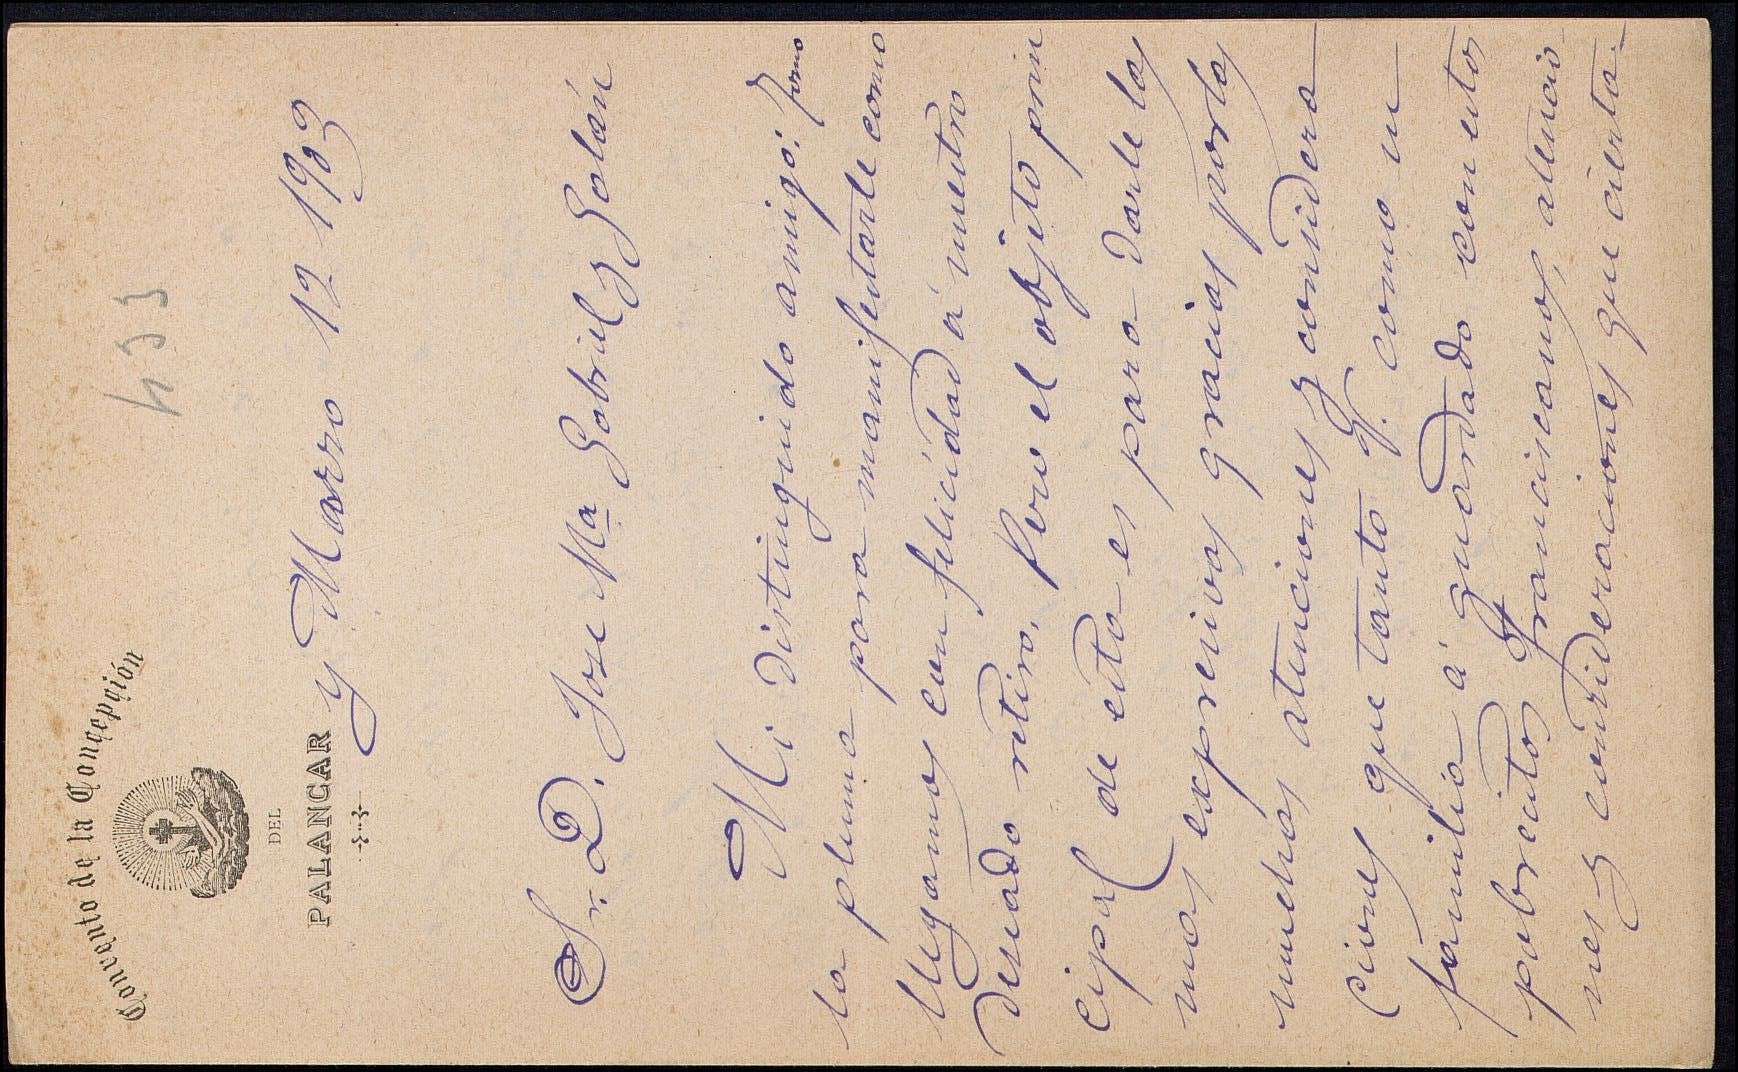 Convento de la Concepción
DEL
PALANCAR
y Marzo 12 1903
433
Sr. D. Jose Ma Gabriel y Galán
Mi distinguido amigo: tomo
la pluma para manifestarle como
llegamos con felicidad á nuestro
deseado retiro. Pero el objeto prin
cipal de esta es para darle las
mas expresivas gracias por las
muchas atenciones y considera
ciones que tanto V. como su
familia á guardado con estos
pobrecitos Franciscanos, atencio
nes y consideraciones que cierta-